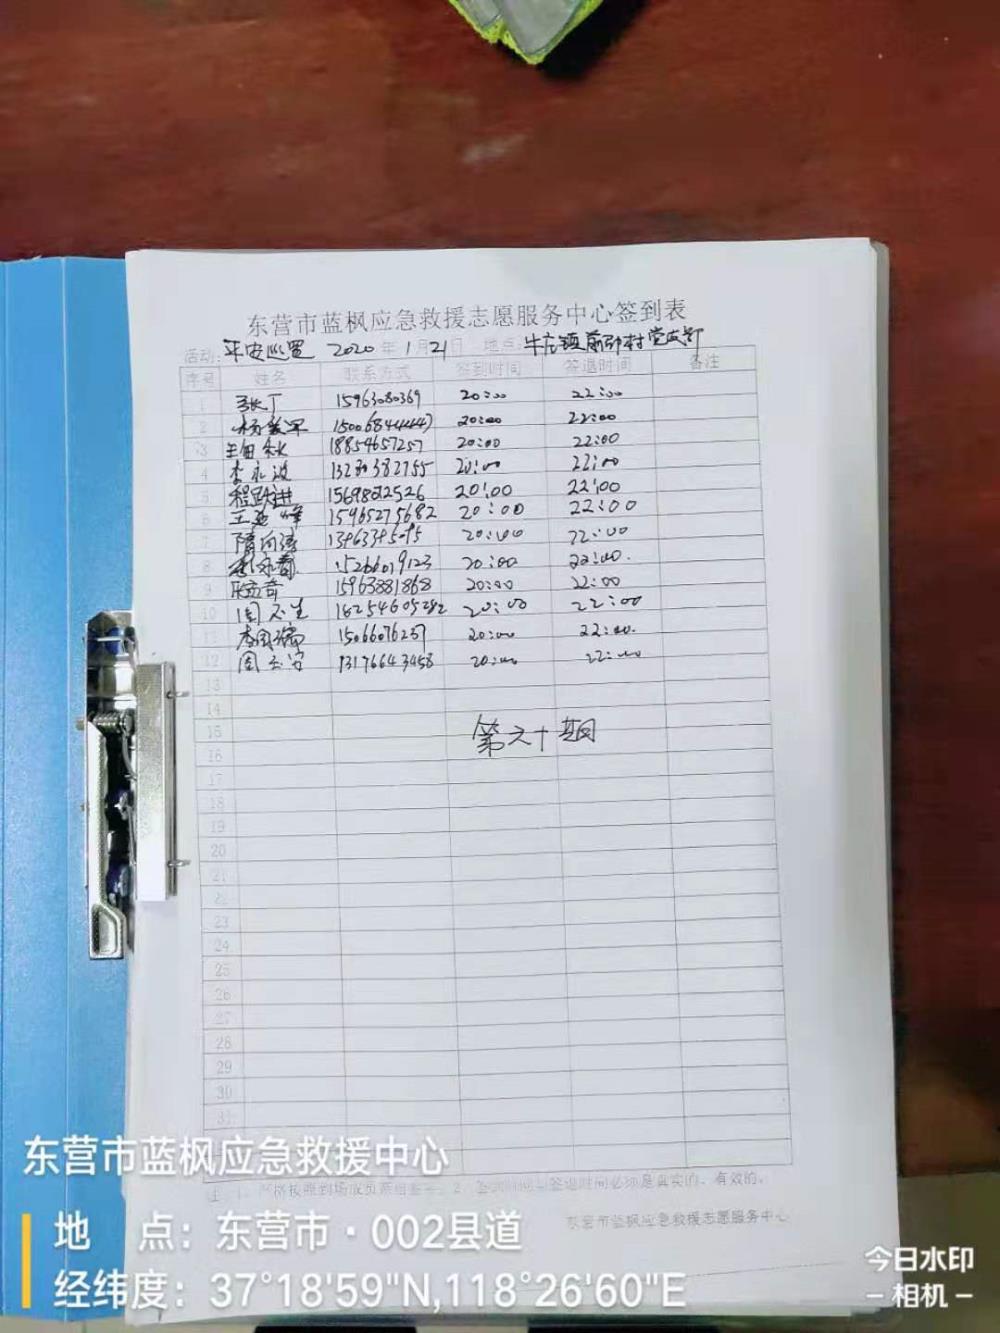 东营市蓝枫应急救援志愿服务中心签到表
活动: 平安巡逻 2020年1月21日 地点: 牛庄镇前邵村党支部
序号 姓名 联系方式 签到时间 签退时间 备注
1 张丁 15963080369 20:00 22:00
2 杨 20:00 22:00
3 18854657257 20:00 22:00
4 李永波 20:00 22:00
5 程跃进 20:00 22:00
6 王 峰 15965275682 20:00 22:00
7 隋向涛 20:00 22:00
8 15266019123 20:00 22:00
9 15963881868 20:00 22:00
10 周 生 20:00 22:00
11 李国瑞 15066076237 20:00 22:00
12 周 安 13176643458 20:00 22:00
13
14
15 第六十期
16
17
18
19
20
21
22
23
24
25
26
27
28
29
30
31
注: 1、严格按照到场成员亲自签字。2、签到时间与签退时间必须是真实的、有效的。
东营市蓝枫应急救援志愿服务中心
东营市蓝枫应急救援中心
地 点: 东营市·002县道
经纬度: 37°18'59"N,118°26'60"E
今日水印
-相机-